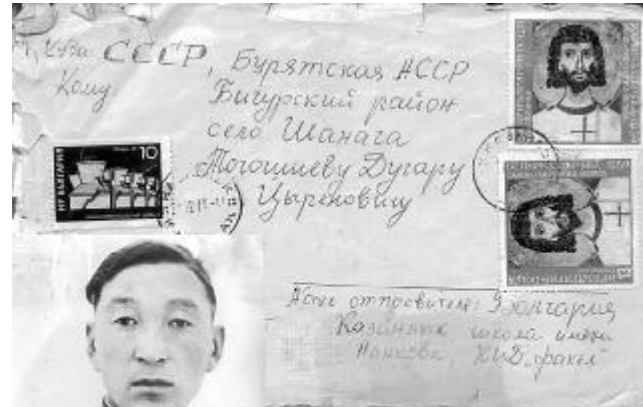 Куда СССР, Бурятская АССР
Кому:
Бичурский район
село Шанага
Тогошиеву Дугару
Цыреновичу
НР БЪЛГАРИЯ
10
Адрес отправителя: Болгария
Казанлык, школа имени
КИД "Факел"